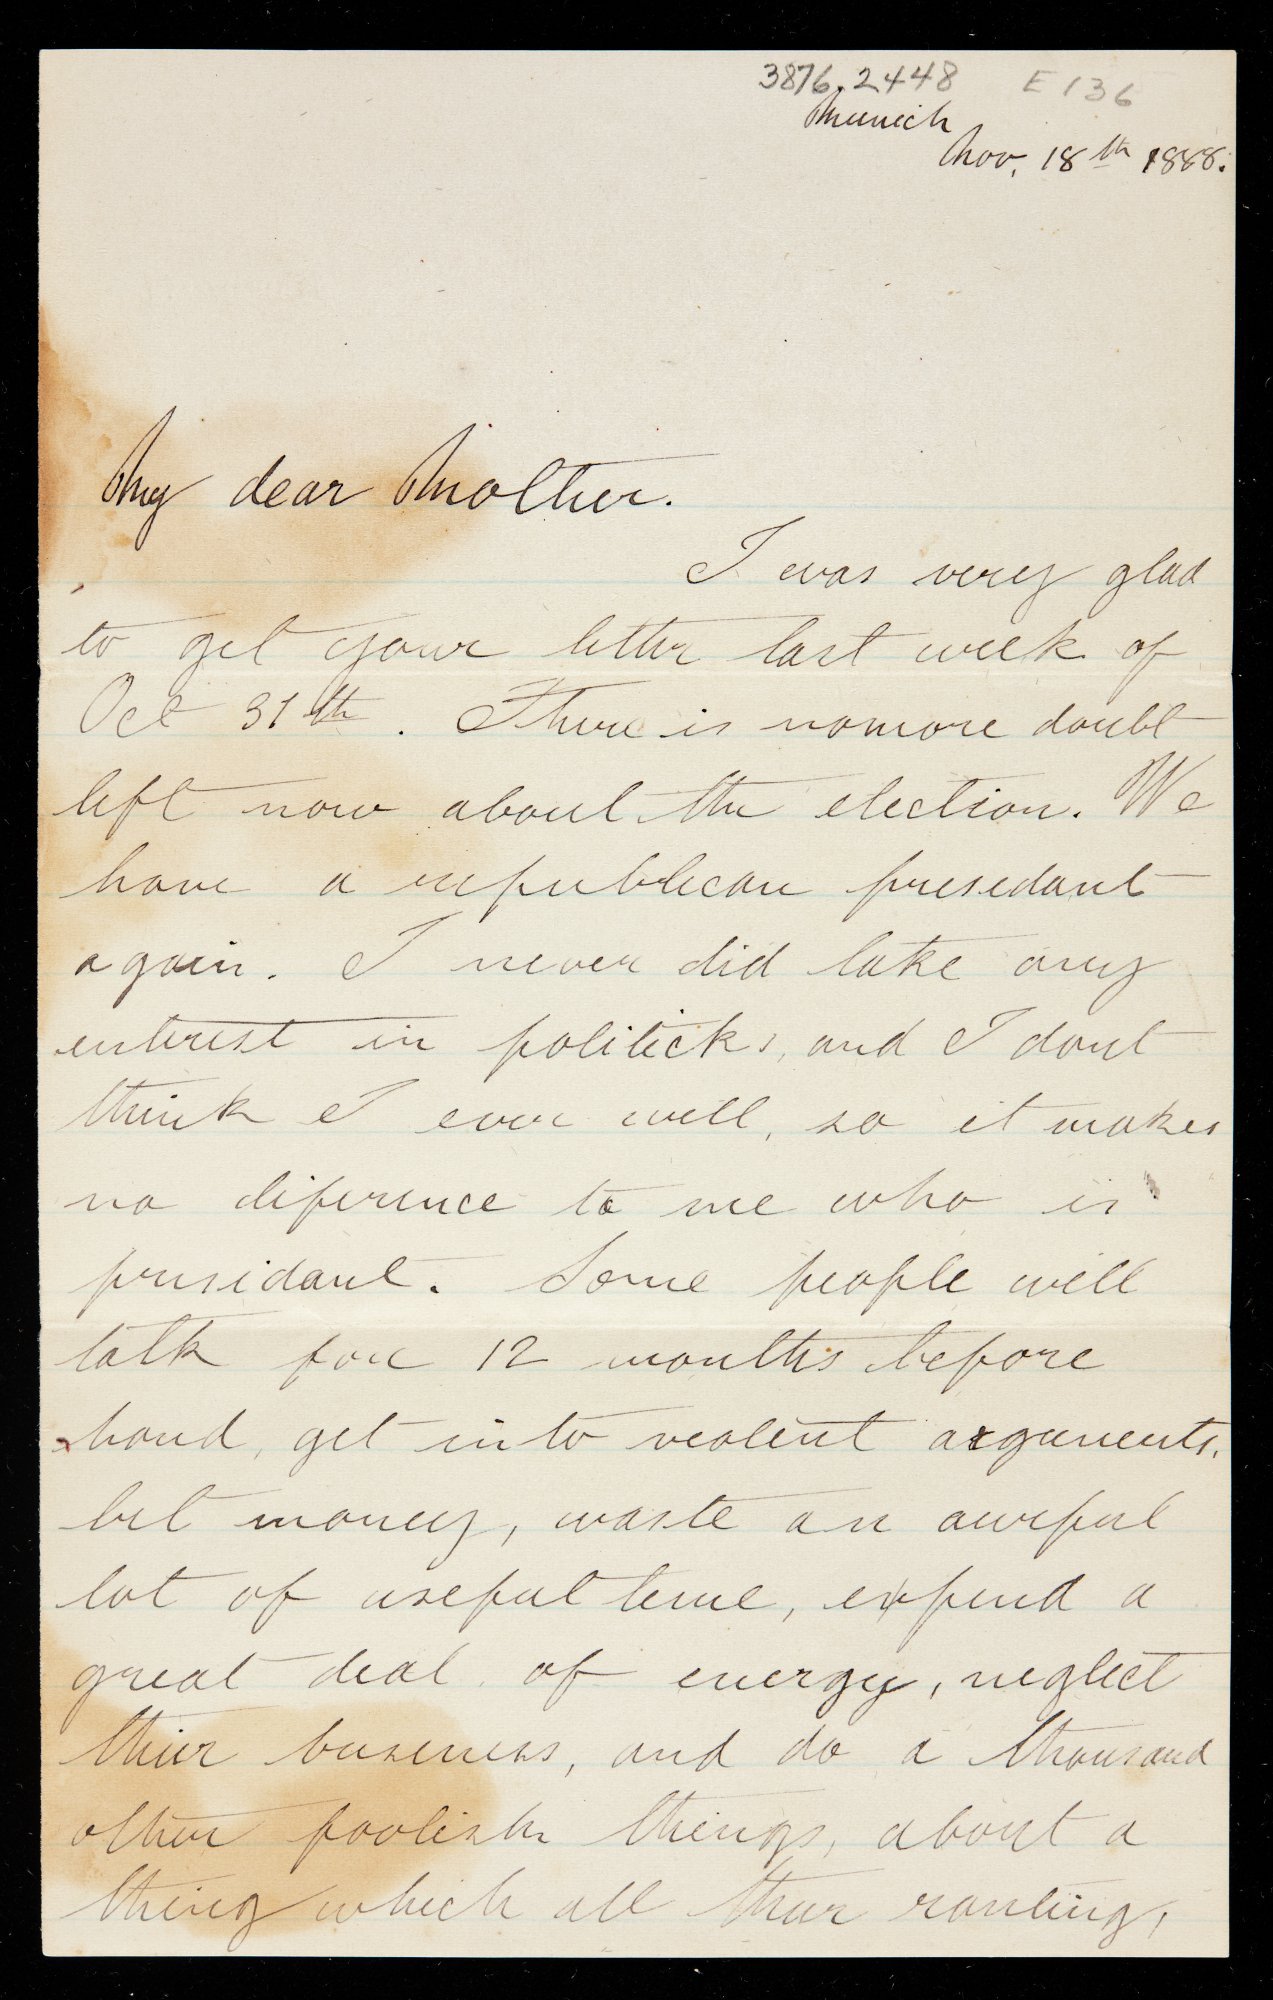 3876.2448 E136
Munich
Nov. 18th 1888.
My dear Mother.
I was very glad
to get your letter last week of
Oct 31th. There is nomore doubt
left now about the election. We
have a republican presedant
again. I never did take any
interest in politicks, and I dont
think I ever will, so it makes
no diference to me who is
presidant. Some people will
talk for 12 months before
hand, get into violent arguments,
bet money, waste an awful
lot of useful time, expend a
great deal of energy, neglect
thier buseness, and do a thousand
other foolish things, about a
thing which all thier ranting,